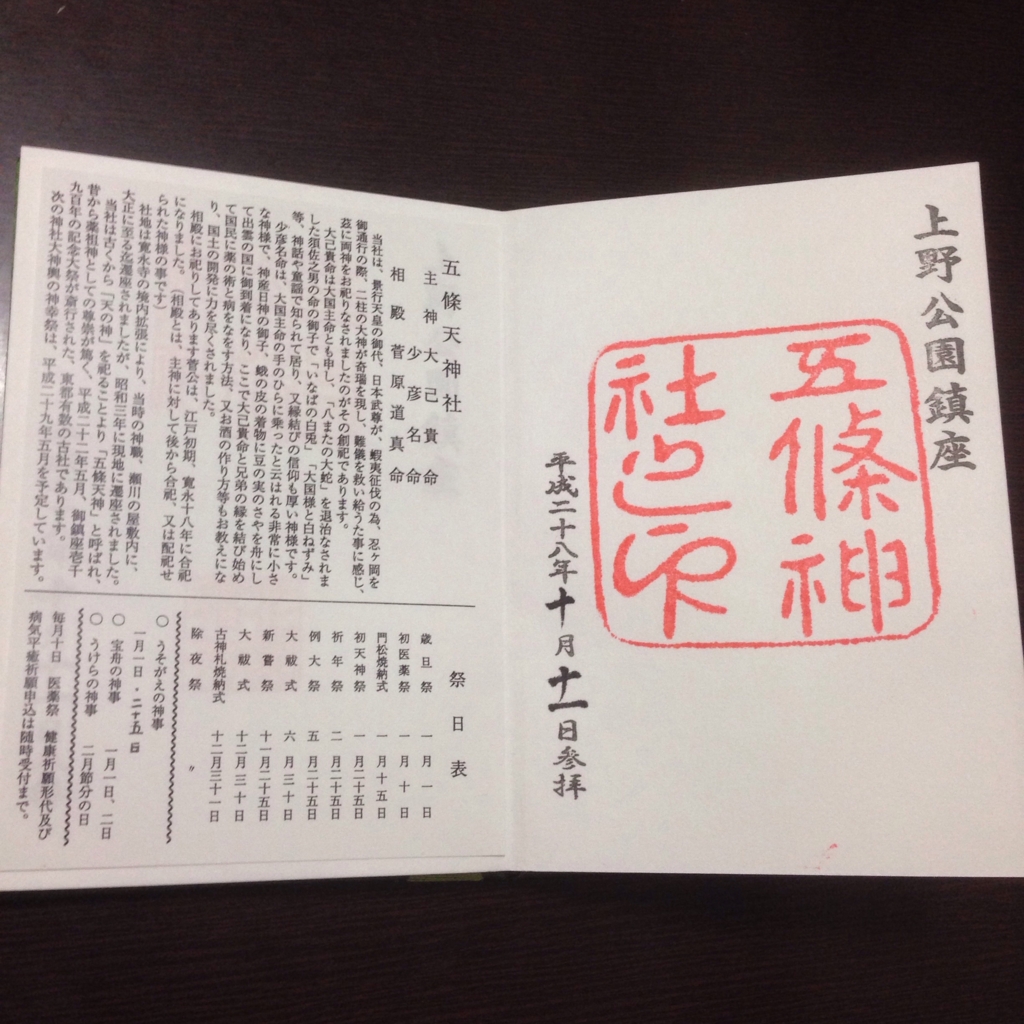 上野公園鎮座
五條神
社之印
平成二十八年十月十一日参拝
五條天神社
主神 大己貴命
少彦名命
相殿 菅原道真命
当社は、景行天皇の御代、日本武尊が、蝦夷征伐の為、忍ヶ岡を
御通行の際、二柱の大神が奇瑞を現し、難儀を救い給うた事に感じ、
茲に両神をお祀りなされましたのがその創祀であります。
大己貴命は大国主命とも申し、「八またの大蛇」を退治なされま
した須佐之男の命の御子で「いなばの白兎」「大国様と白ねずみ」
等、神話や童謡で知られて居り、又縁結びの信仰も厚い神様です。
少彦名命は、大国主命の手のひらに乗ったと云はれる非常に小さ
な神様で、神産日神の御子、蛾の皮の着物に豆の実のさやを舟にし
て出雲の国に御到着になり、ここで大己貴命と兄弟の縁を結び始め
て国民に薬の術と病をなをす方法、又お酒の作り方等もお教えにな
り、国土の開発に力を尽くされました。
相殿にお祀りしてあります菅公は、江戸初期、寛永十八年に合祀
になりました。(相殿とは、主神に対して後から合祀、又は配祀せ
られた神様の事です)
社地は寛永寺の境内拡張により、当時の神職、瀬川の屋敷内に、
大正に至る迄遷座されましたが、昭和三年に現地に遷座されました。
当社は古くから「天の神」を祀ることより「五條天神」と呼ばれ、
昔から薬祖神としての尊崇が篤く、平成二十二年五月、御鎮座壱千
九百年の記念大祭が斎行された、東都有数の古社であります。
次の神社大神輿の神幸祭は、平成二十九年五月を予定しています。
祭日表
歳旦祭 一月一日
初医薬祭 一月十日
門松焼納式 一月十五日
初天神祭 一月二十五日
祈年祭 二月二十五日
例大祭 五月二十五日
大祓式 六月三十日
新嘗祭 十一月二十五日
大祓式 十二月三十日
古神札焼納式 十二月三十一日
除夜祭 〃
○ うそがえの神事
一月一日・二十五日
○ 宝舟の神事 一月一日、二日
○ うけらの神事 二月節分の日
毎月十日 医薬祭 健康祈願形代及び
病気平癒祈願申込は随時受付まで。